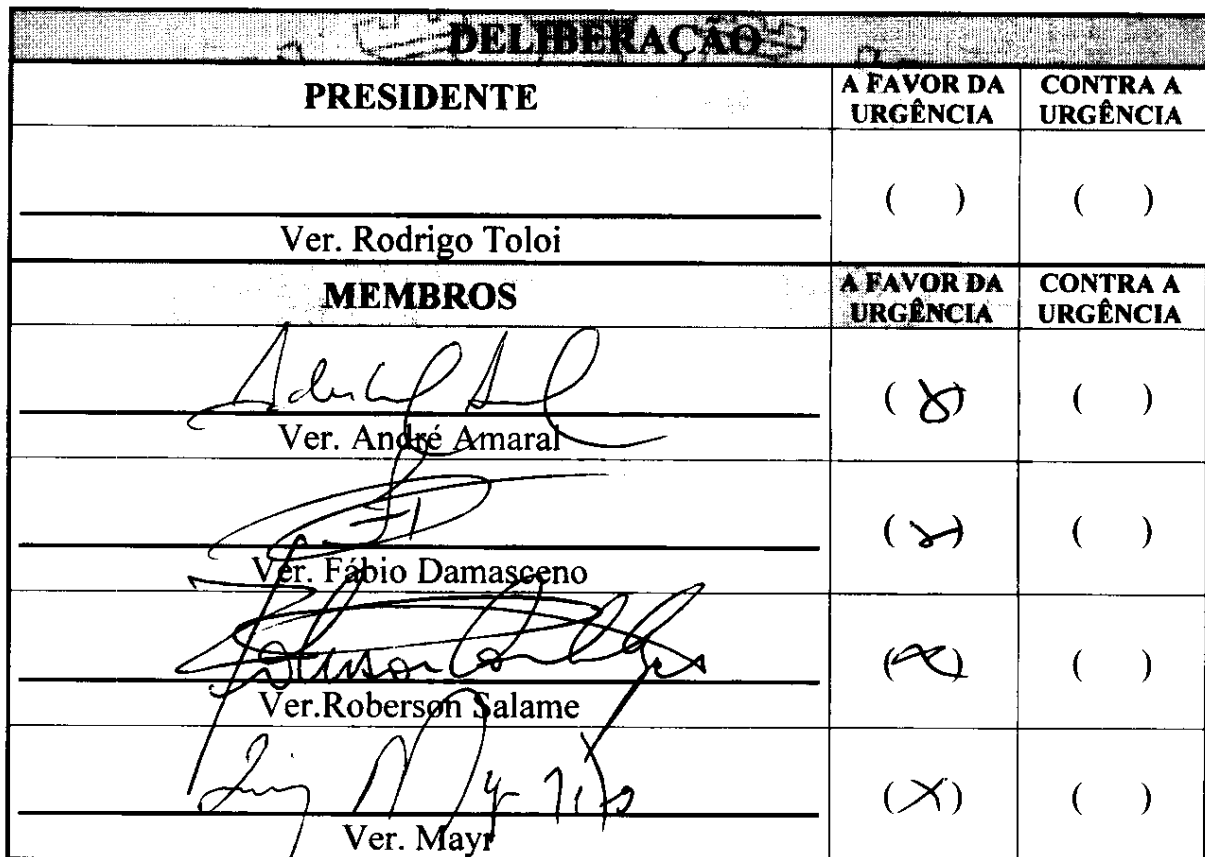 DELIBERAÇÃO
PRESIDENTE A FAVOR DA URGÊNCIA CONTRA A URGÊNCIA
( ) ( )
Ver. Rodrigo Toloi
MEMBROS A FAVOR DA URGÊNCIA CONTRA A URGÊNCIA
(X) ( )
Ver. André Amaral
(X) ( )
Ver. Fábio Damasceno
(X) ( )
Ver.Roberson Salame
(X) ( )
Ver. Mayr